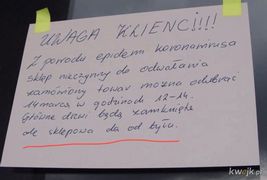 UWAGA KLIENCI!!!!
Z powodu epidemi koronawirusa
sklep nieczynny do odwołania
zamówiony towar można odebrać
14 marca w godzinach 12-14.
Główne drzwi będą zamknięte
ale sklepowa da od tyłu.
kwejk.pl